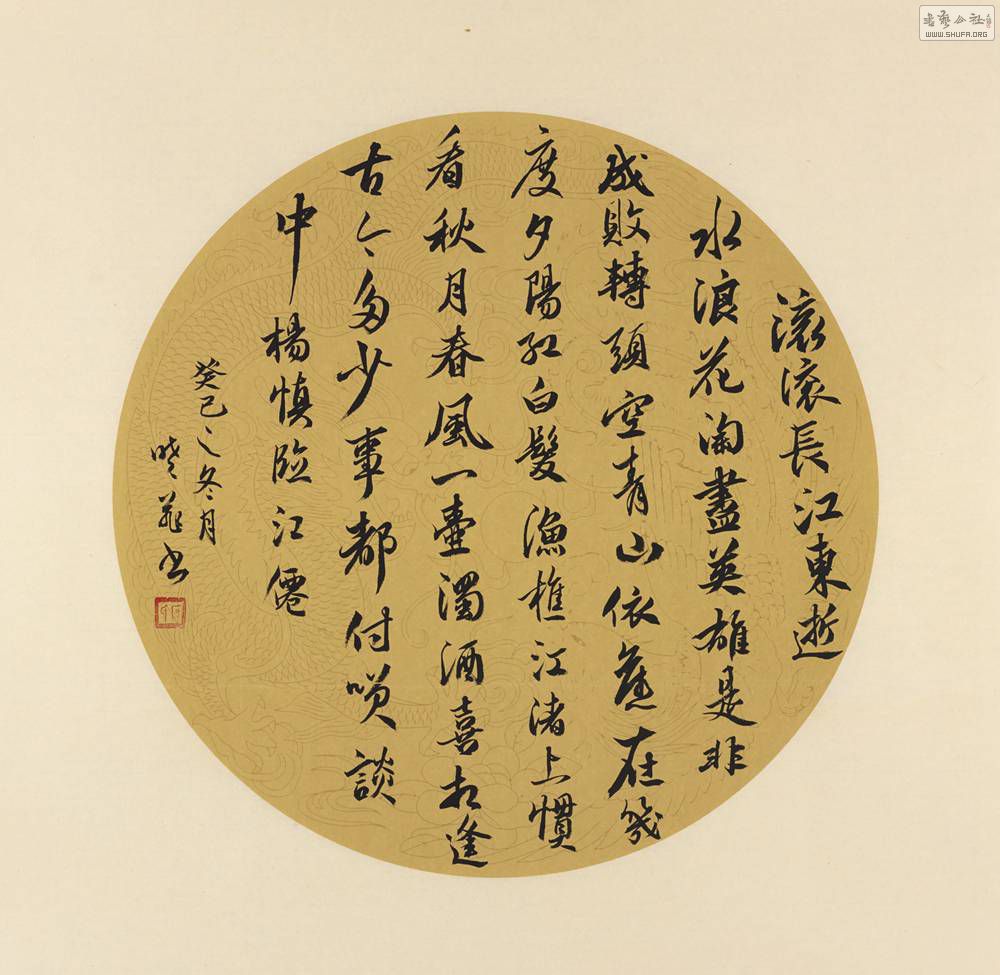 滚滚長江東逝
水浪花淘盡英雄是非
成敗轉頭空青山依舊在幾
度夕陽紅白髮漁樵江渚上慣
看秋月春風一壷濁酒喜相逢
古今多少事都付笑談
中 楊慎臨江僊
癸巳之冬月
書
書藝公社
WWW.SHUFA.ORG